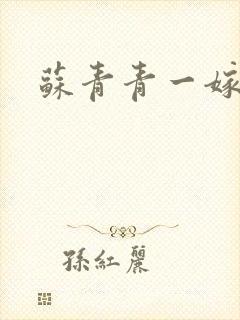 蘇青青一嫁
孫紅麗